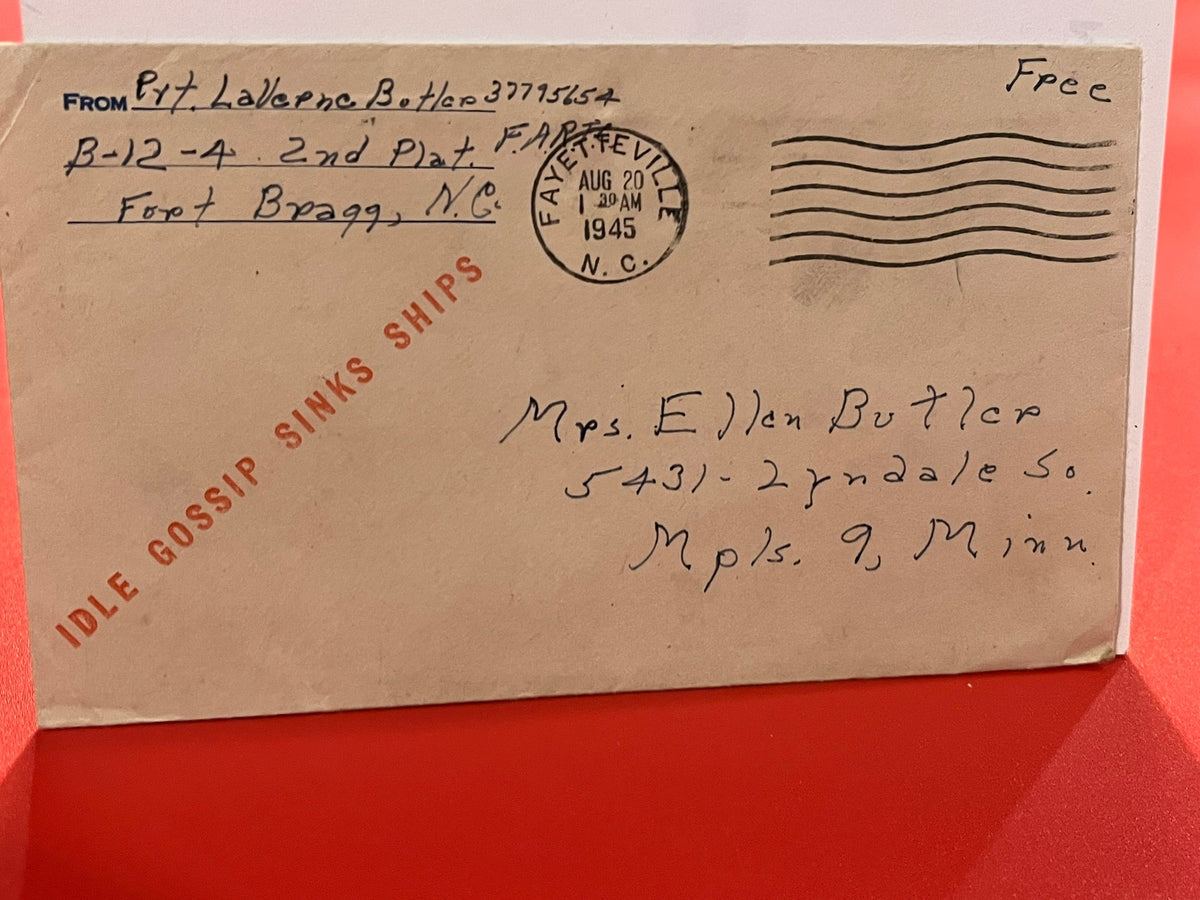 Free
FROM Pvt. LaVerne Butler 37795654
B-12-4. 2nd Plat. F.A.R.T.C.
Fort Bragg, N.C.
FAYETTEVILLE
AUG 20
1 30 AM
1945
N. C.
IDLE GOSSIP SINKS SHIPS
Mrs. Ellen Butler
5431-Lyndale So.
Mpls. 9, Minn.